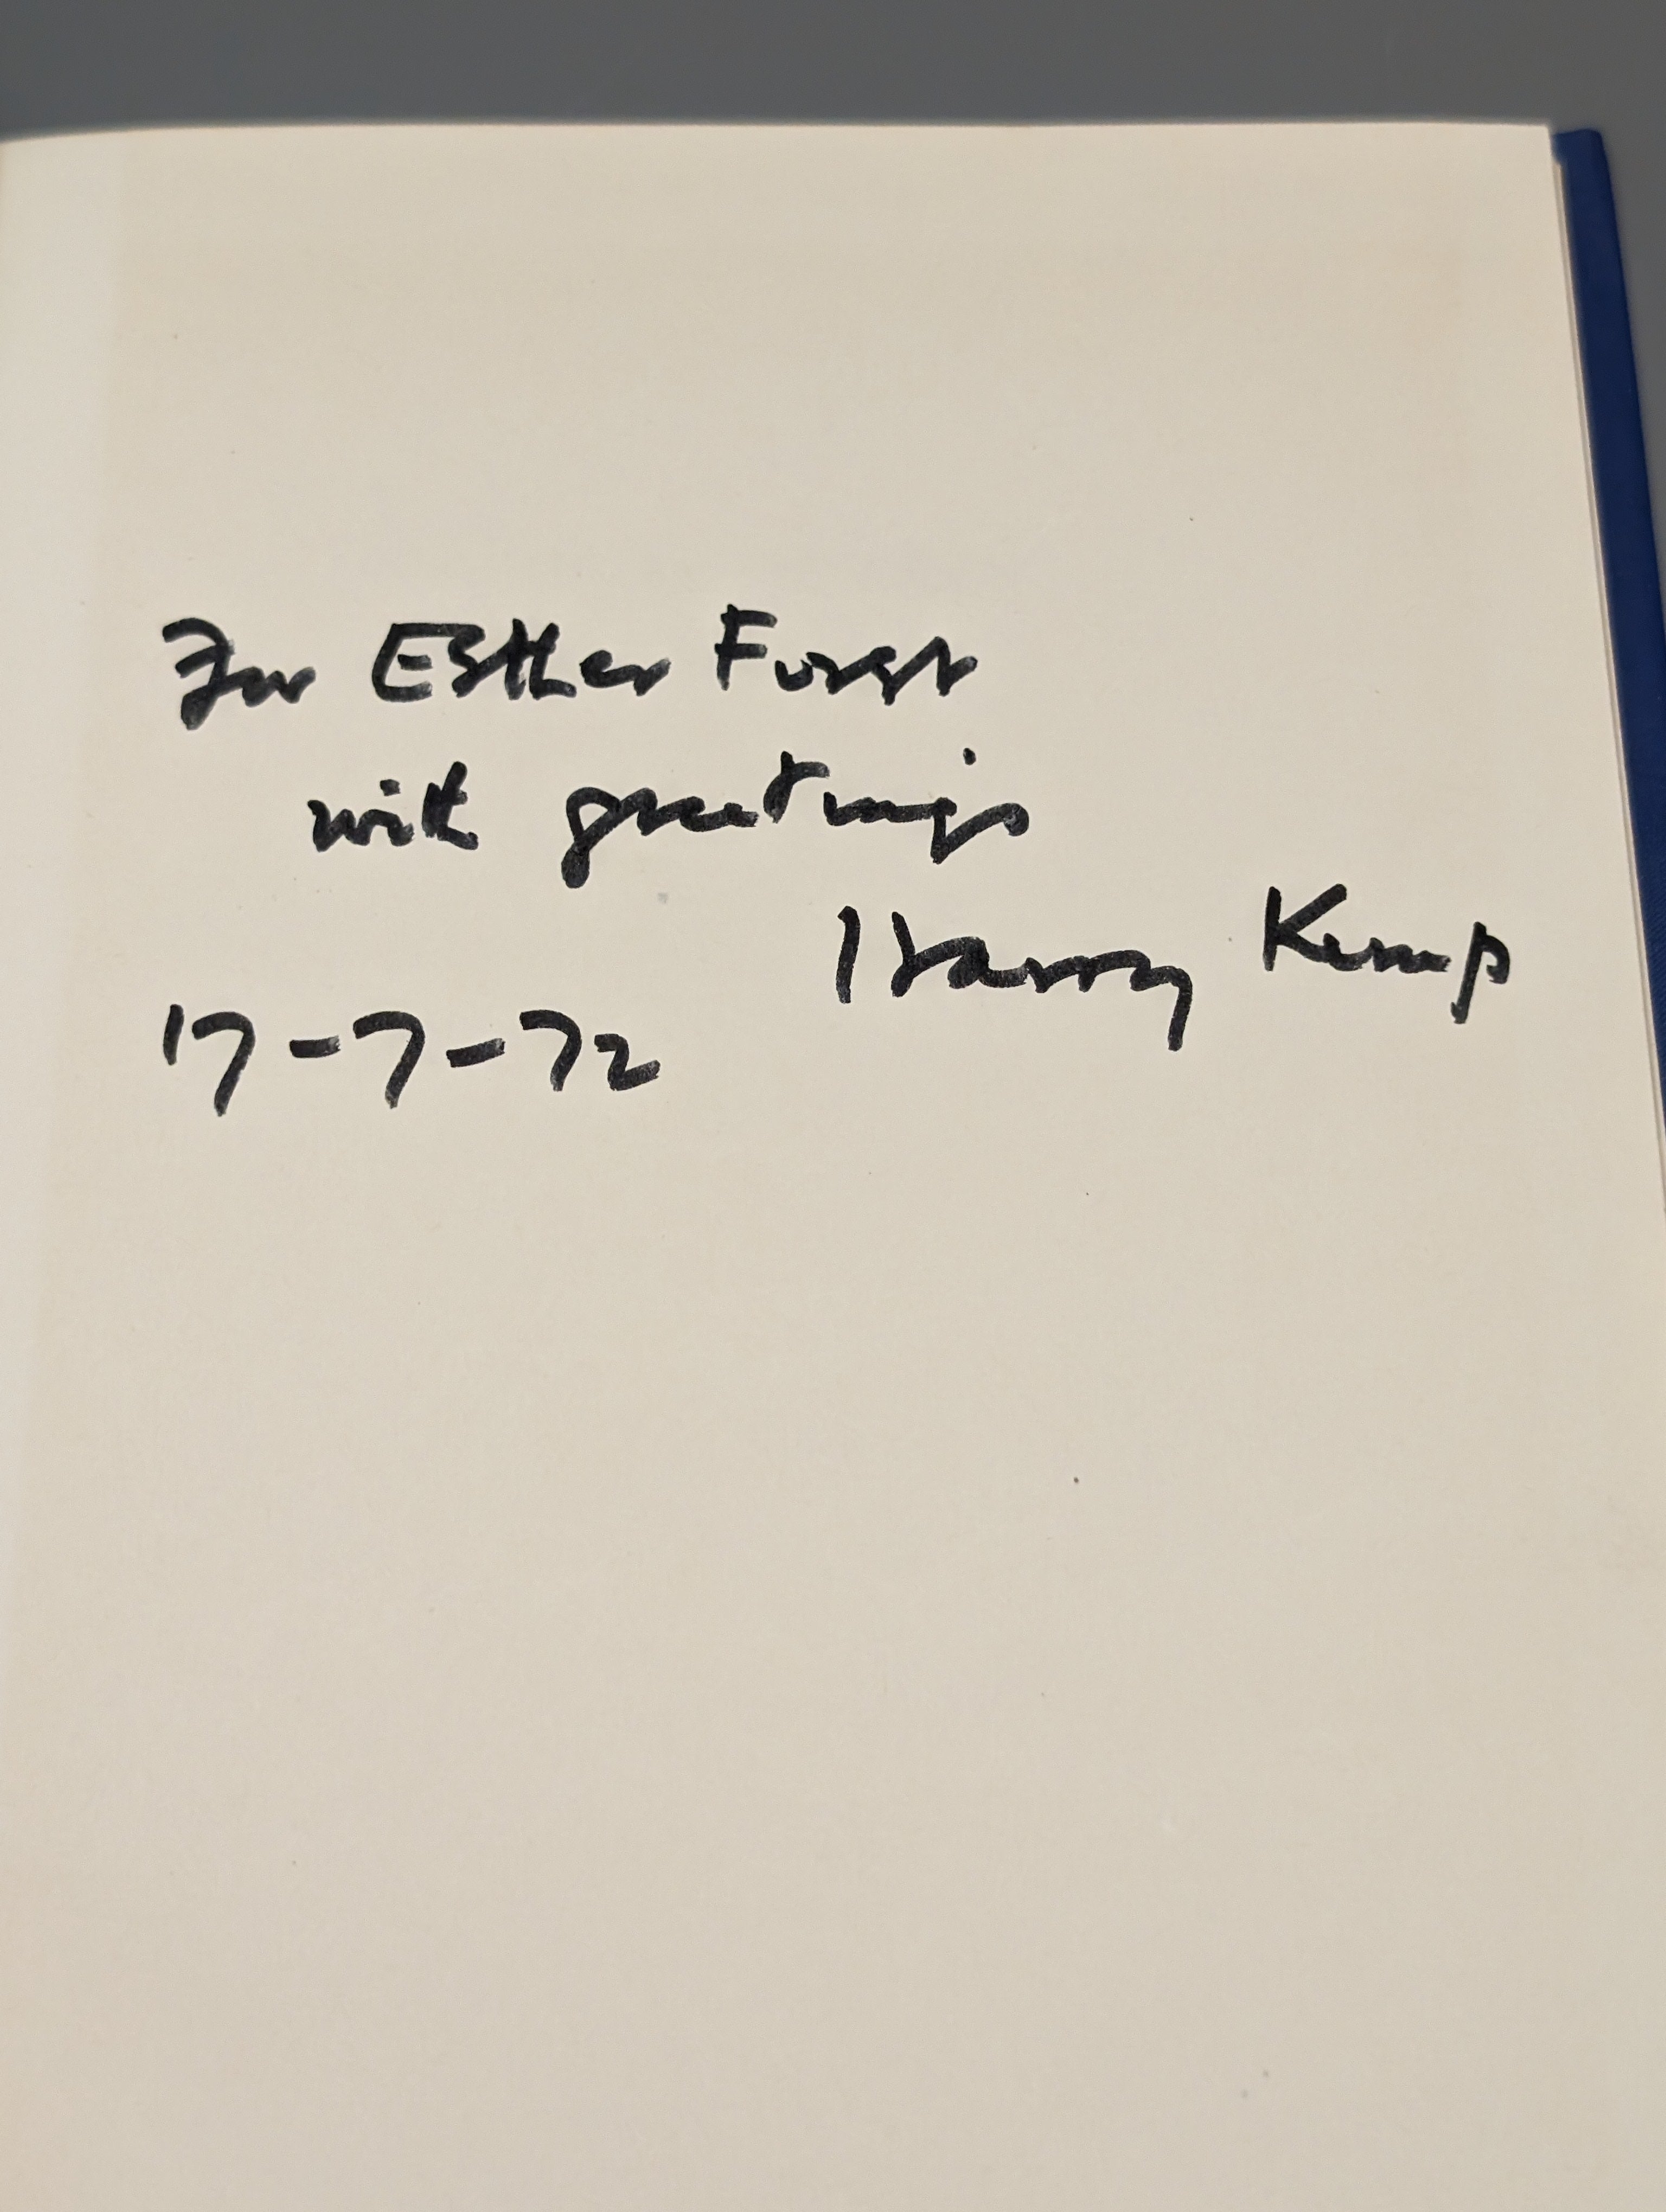 For Esther Forst
with greetings
Harry Kemp
17-7-72